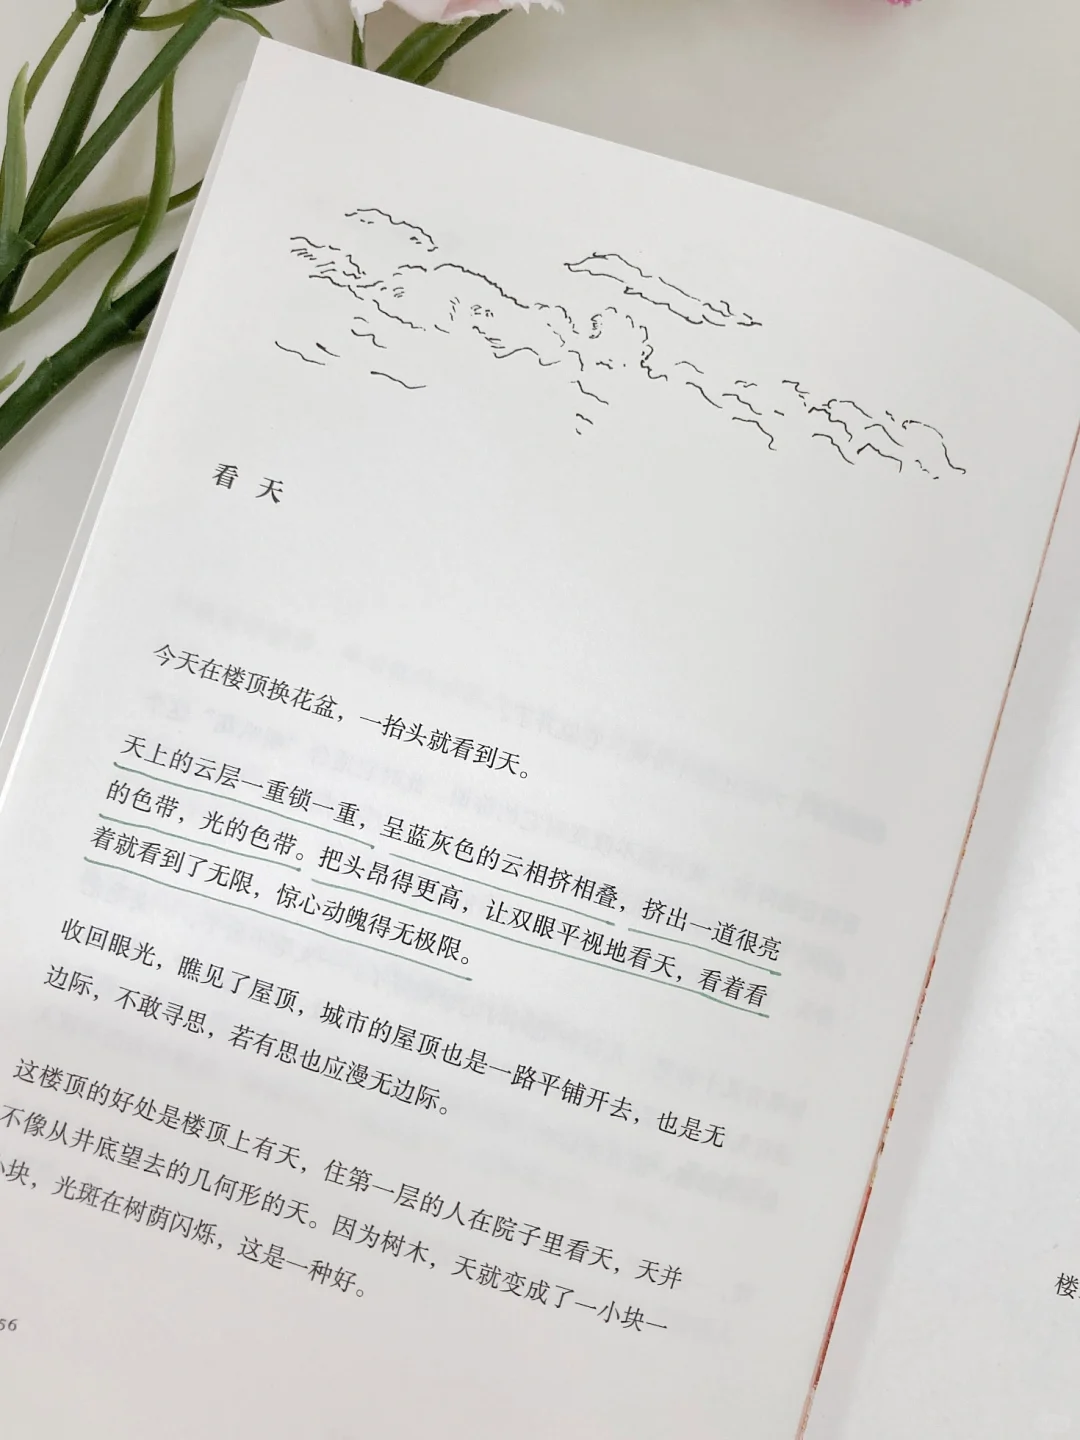 看天
今天在楼顶换花盆，一抬头就看到天。
天上的云层一重锁一重，呈蓝灰色的云相挤相叠，挤出一道很亮
的色带，光的色带。把头昂得更高，让双眼平视地看天，看着看
着就看到了无限，惊心动魄得无极限。
收回眼光，瞧见了屋顶，城市的屋顶也是一路平铺开去，也是无
边际，不敢寻思，若有思也应漫无边际。
这楼顶的好处是楼顶上有天，住第一层的人在院子里看天，天并
不像从井底望去的几何形的天。因为树木，天就变成了一小块一
小块，光斑在树荫闪烁，这是一种好。
56
楼